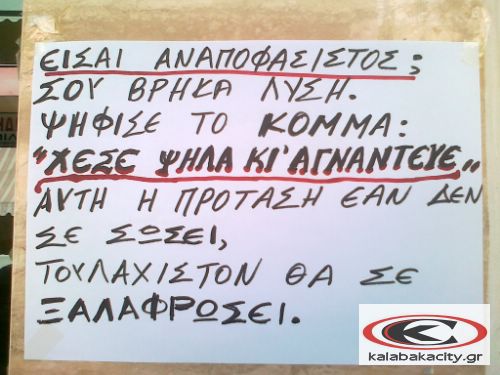 ΕΙΣΑΙ ΑΝΑΠΟΦΑΣΙΣΤΟΣ;
ΣΟΥ ΒΡΗΚΑ ΛΥΣΗ.
ΨΗΦΙΣΕ ΤΟ ΚΟΜΜΑ:
"ΧΕΣΕ ΨΗΛΑ ΚΙ' ΑΓΝΑΝΤΕΥΕ„
ΑΥΤΗ Η ΠΡΟΤΑΣΗ ΕΑΝ ΔΕΝ
ΣΕ ΣΩΣΕΙ,
ΤΟΥΛΑΧΙΣΤΟΝ ΘΑ ΣΕ
ΞΑΛΑΦΡΩΣΕΙ.
kalabakacity.gr